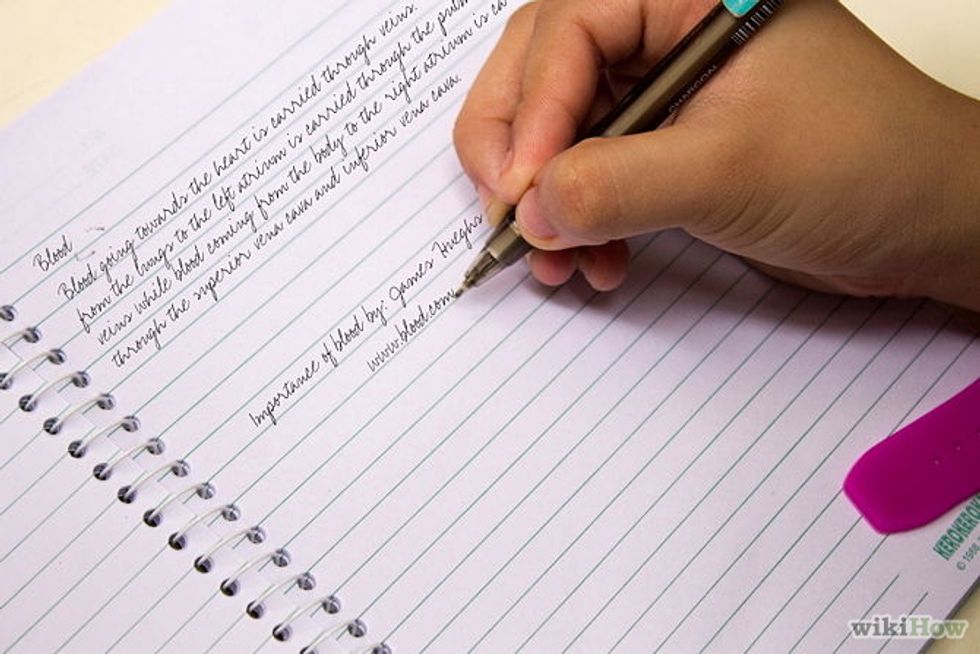 Blood
Blood going towards the heart is carried through veins.
from the lungs to the left atrium is carried through the pulm
veins while blood coming from the body to the right atrium is ca
through the superior vena cava and inferior vena cava.
Importance of blood by: James Hueghs
www.blood.com
CHARCOAL
KEROKEROK
© 1998
wikiHow